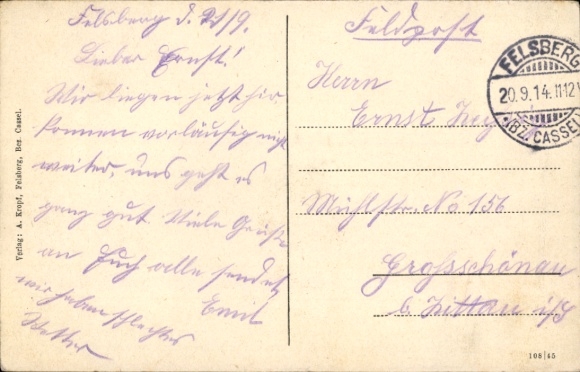 Felsberg d. 21/9.
Lieber Ernst!
Wir liegen jetzt hir
kommen vorläufig nicht
weiter, uns geht es
ganz gut Viele Grüße
an Euch alle sendet
Emil
wir haben schlechtes
Wetter
Verlag: A. Kropf, Felsberg, Bez. Cassel.
Feldpost
FELSBERG
20.9.14.11-12V
(BZ. CASSEL)
Herrn
Ernst
Mühlstr. No 156
Grossschönau
b. Zittau i/S
108|45